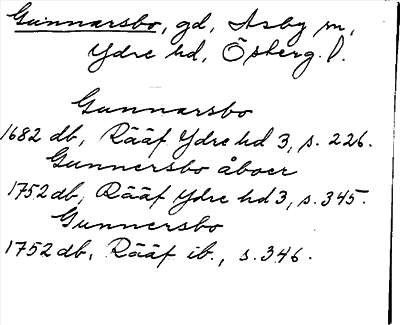 Gunnarsbo, gd, Asby sn,
Ydre hd, Österg. l.
Gunnarsbo
1682 db, Rääf Ydre hd 3, s. 226.
Gunnersbo åboer
1752 db, Rääf Ydre hd 3, s. 345.
Gunnersbo
1752 db, Rääf ib., s. 346.